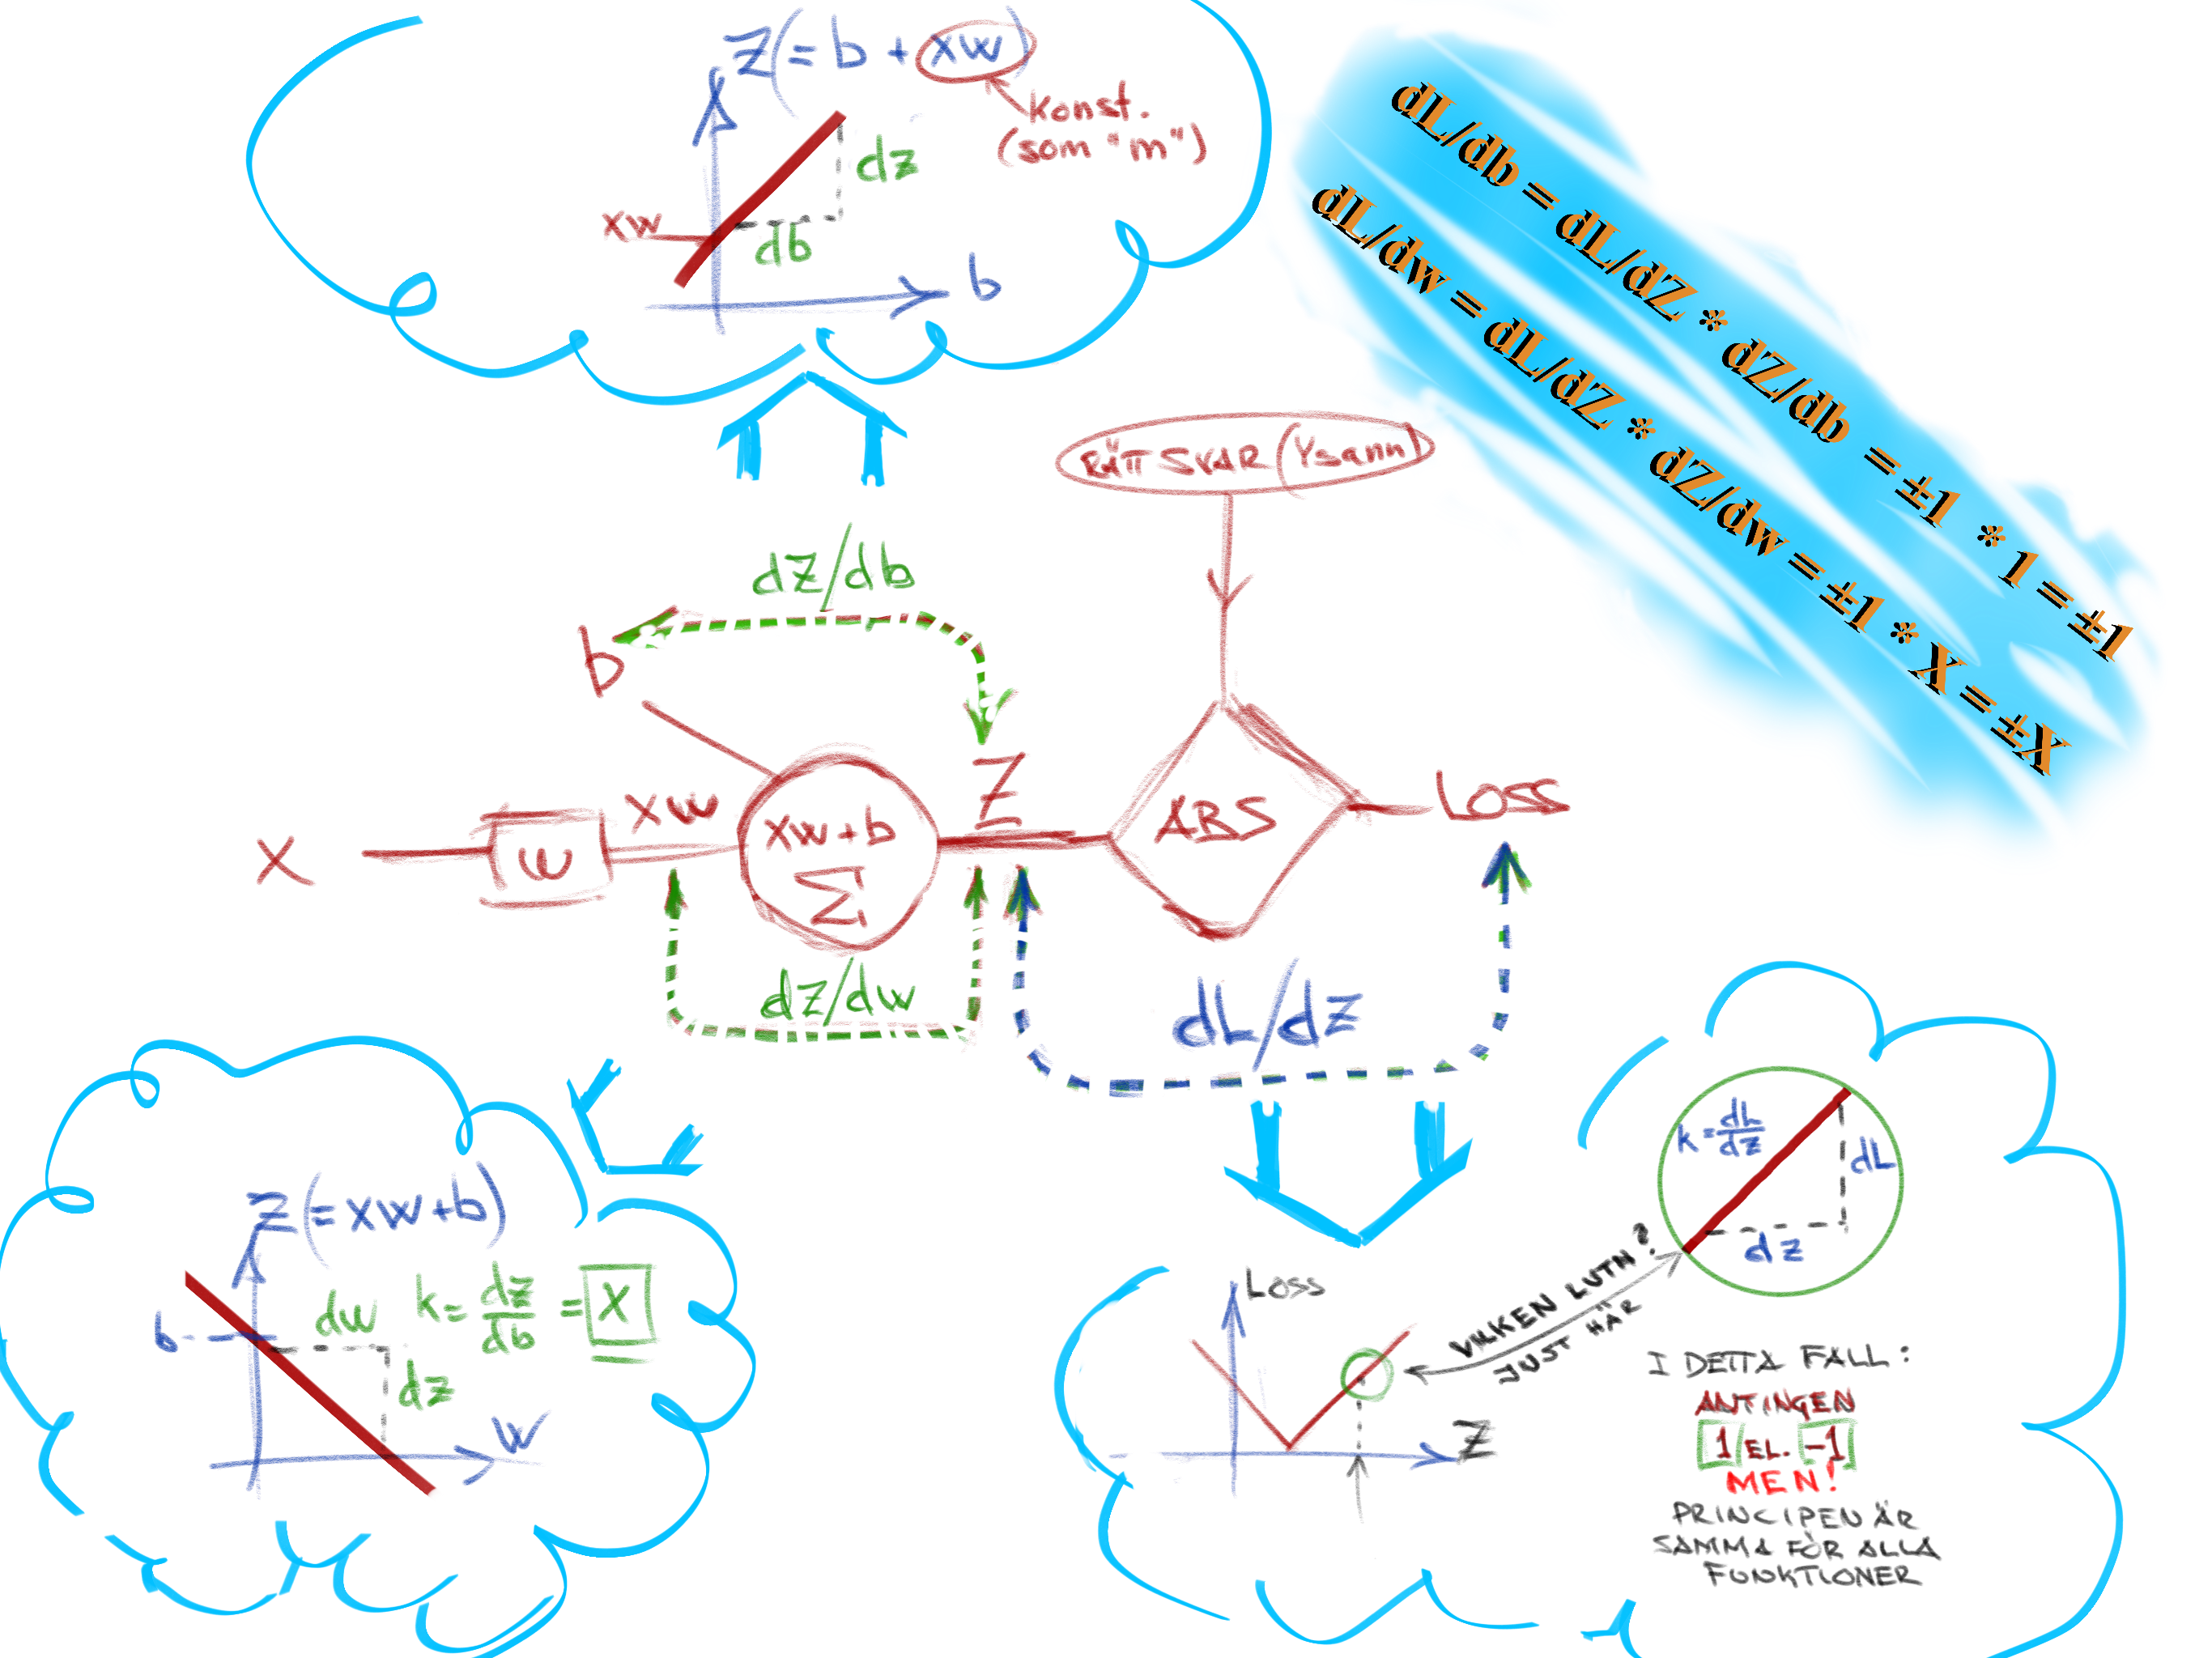 Z(= b + xw)
konst.
(som "m")
dz
xw
db
b
dL/db = dL/dZ * dZ/db = ±1 * 1 = ±1
dL/dw = dL/dZ * dZ/dw = ±1 * X = ±X
RÄTT SVAR (Ysann)
dz/db
b
Z
X
w
xw
xw+b
Σ
ABS
Loss
dz/dw
dL/dz
Z(= xw+b)
b
dw
k = dz/db = X
dz
w
Loss
Z
VILKEN LUTN?
JUST HÄR
k = dL/dz
dL
dz
I DETTA FALL:
ANTINGEN
1 EL. -1
MEN!
PRINCIPEN ÄR
SAMMA FÖR ALLA
FUNKTIONER